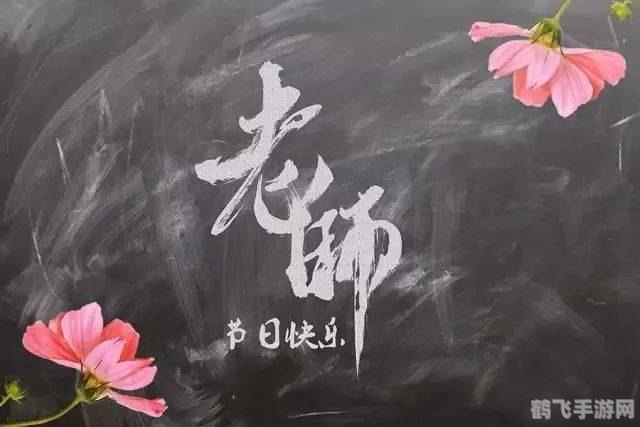 老師
节日快乐
鹤飞手游网